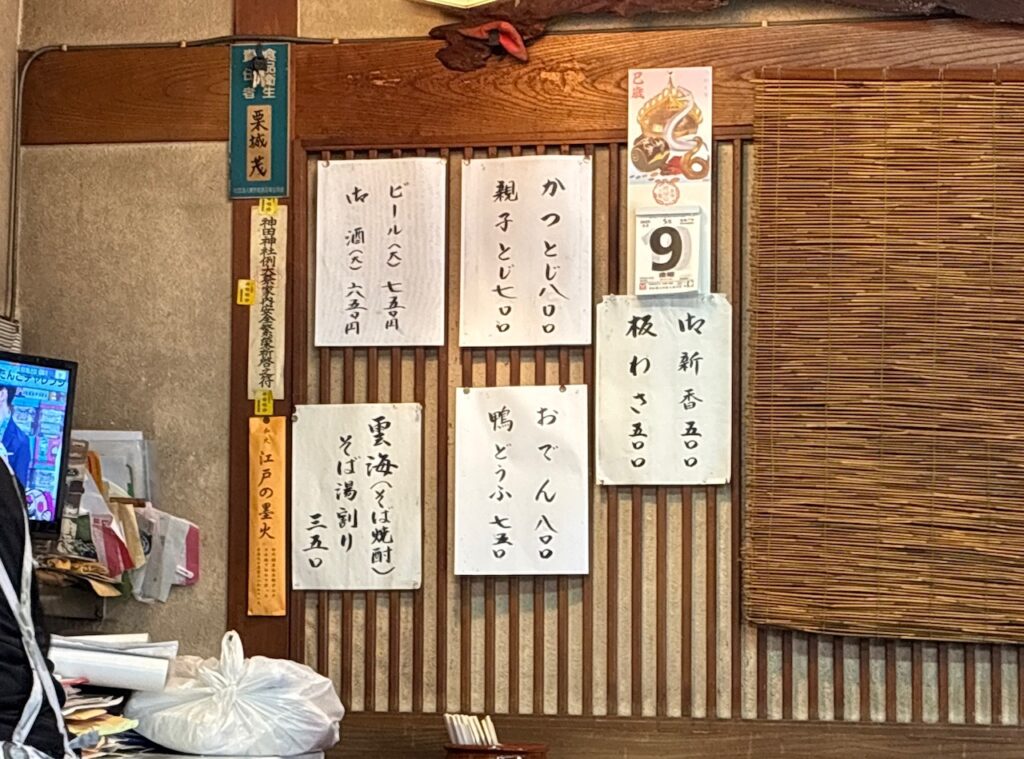 食品衛生
責任者
栗城 茂
神田神社例大祭家内安全繁栄祈啓之符
江戸の墨火
ビール(大) 七五〇円
御酒(大) 六五〇円
かつとじ 八〇〇
親子とじ 七〇〇
巳歳
5
9
金曜
御新香 五〇〇
板わさ 五〇〇
雲海(そば焼酎)
そば湯割り
三五〇
おでん 八〇〇
鴨どうふ 七五〇